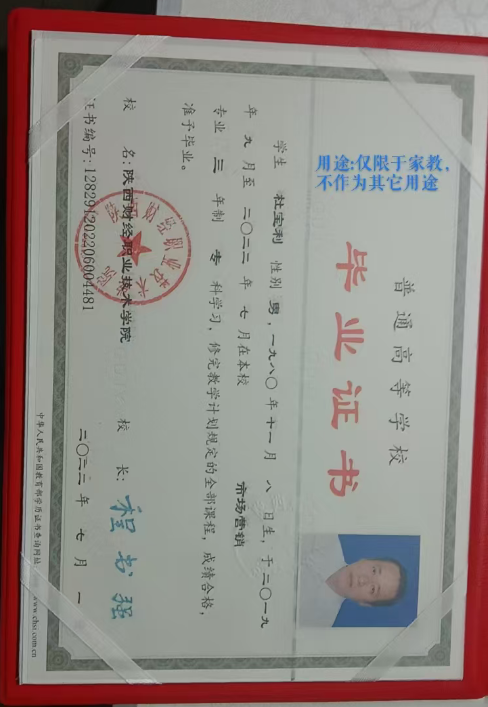 用途:仅限于家教,
不作为其它用途
普通高等学校
毕业证书
学生 杜宝利 性别 男,一九八〇年十一月 八 日生,于二〇一九
年 九 月至 二〇二二 年 七 月在本校 市场营销
专业 三 年制 专 科学习,修完教学计划规定的全部课程,成绩合格,
准予毕业。
校 名:陕西财经职业技术学院 校 长:程书强
证书编号:128291202206004481 二〇二二年 七 月 一
中华人民共和国教育部学历证书查询网址: www.chsi.com.cn